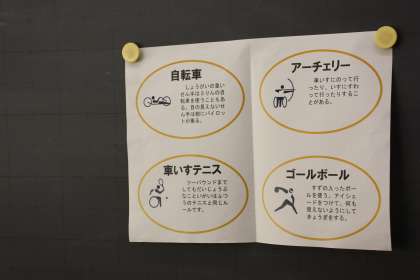 自転車
しょうがいの重い
せん手は三りんの自
転車を使うこともあ
る。目の見えないせ
ん手は前にパイロッ
トが乗る。
アーチェリー
車いすにのって行
ったり、いすにすわ
って行ったりするこ
とがある。
車いすテニス
ツーバウンドまで
してもだいじょうぶ
なこといがいはふつ
うのテニスと同じル
ールです。
ゴールボール
すずの入ったボー
ルを使う。アイシェ
ードをつけて、何も
見えないようにして
きょうぎをする。